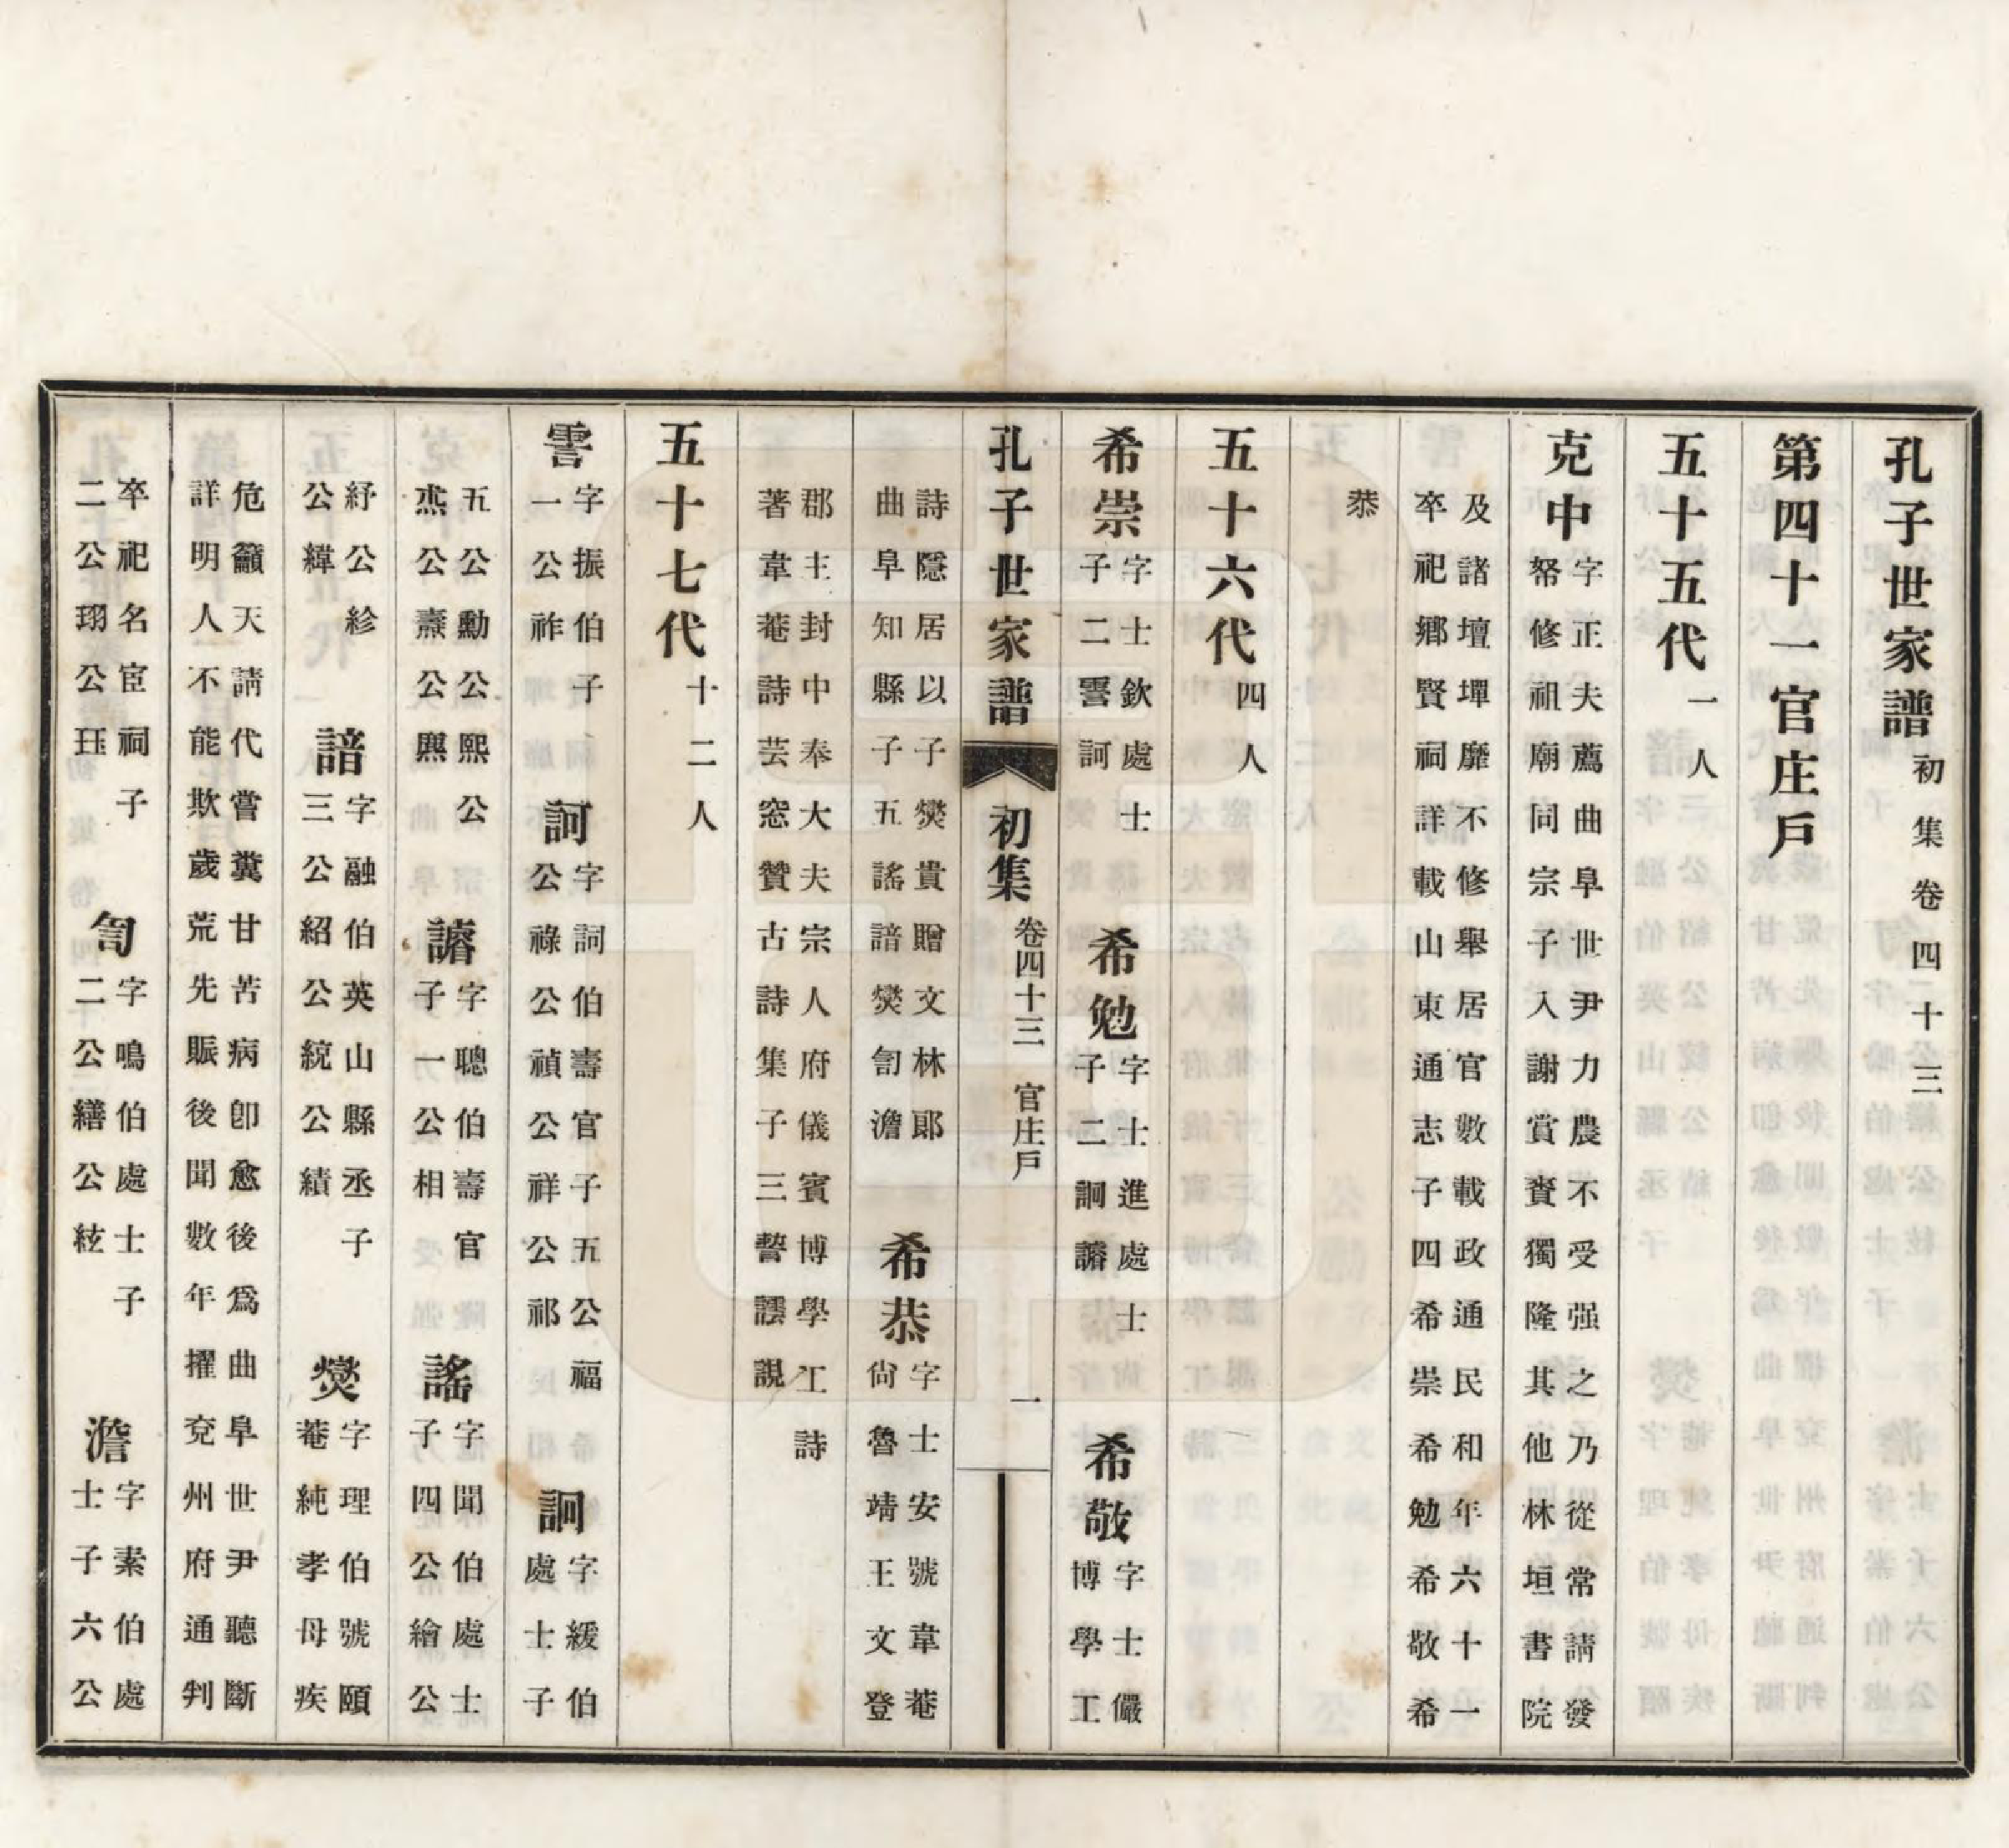 孔子世家譜初集卷四十三
第四十一官庄戶
五十五代一人
克中字正夫薦曲阜世尹力農不受强之乃從常請發
帑修祖廟同宗子入謝賞賚獨隆其他林垣書院
及諸壇墠靡不修舉居官數載政通民和年六十一
卒祀鄉賢祠詳載山東通志子四希崇希勉希敬希
恭
五十六代四人
希崇字士欽處士
子二䜁訶
希勉字士進處士
子二詗𧫴
希敬字士儼
博學工
孔子世家譜 初集 卷四十三 官庄戶 一
詩隱居以子爕貴贈文林郎
曲阜知縣子五謠諳爕訇澹
希恭字士安號葦菴
尙魯靖王文登
郡主封中奉大夫宗人府儀賓博學工詩
著葦菴詩芸窓贊古詩集子三謺譞䚯
五十七代十二人
䜁字振伯子
一公祚
訶字詞伯壽官子五公福
公祿公禎公祥公祁
詗字緩伯
處士子
五公勳公熙公
𤋮公燾公㷠
𧫴字聰伯壽官
子一公相
謠字聞伯處士
子四公繪公
紓公紾
公緯
諳字融伯英山縣丞子
三公紹公統公績
爕字理伯號頤
菴純孝母疾
危籲天請代嘗糞甘苦病卽愈後爲曲阜世尹聽斷
詳明人不能欺歲荒先賑後聞數年擢兗州府通判
卒祀名宦祠子
二公珝公珏
訇字鳴伯處士子
二公繕公紘
澹字素伯處
士子六公